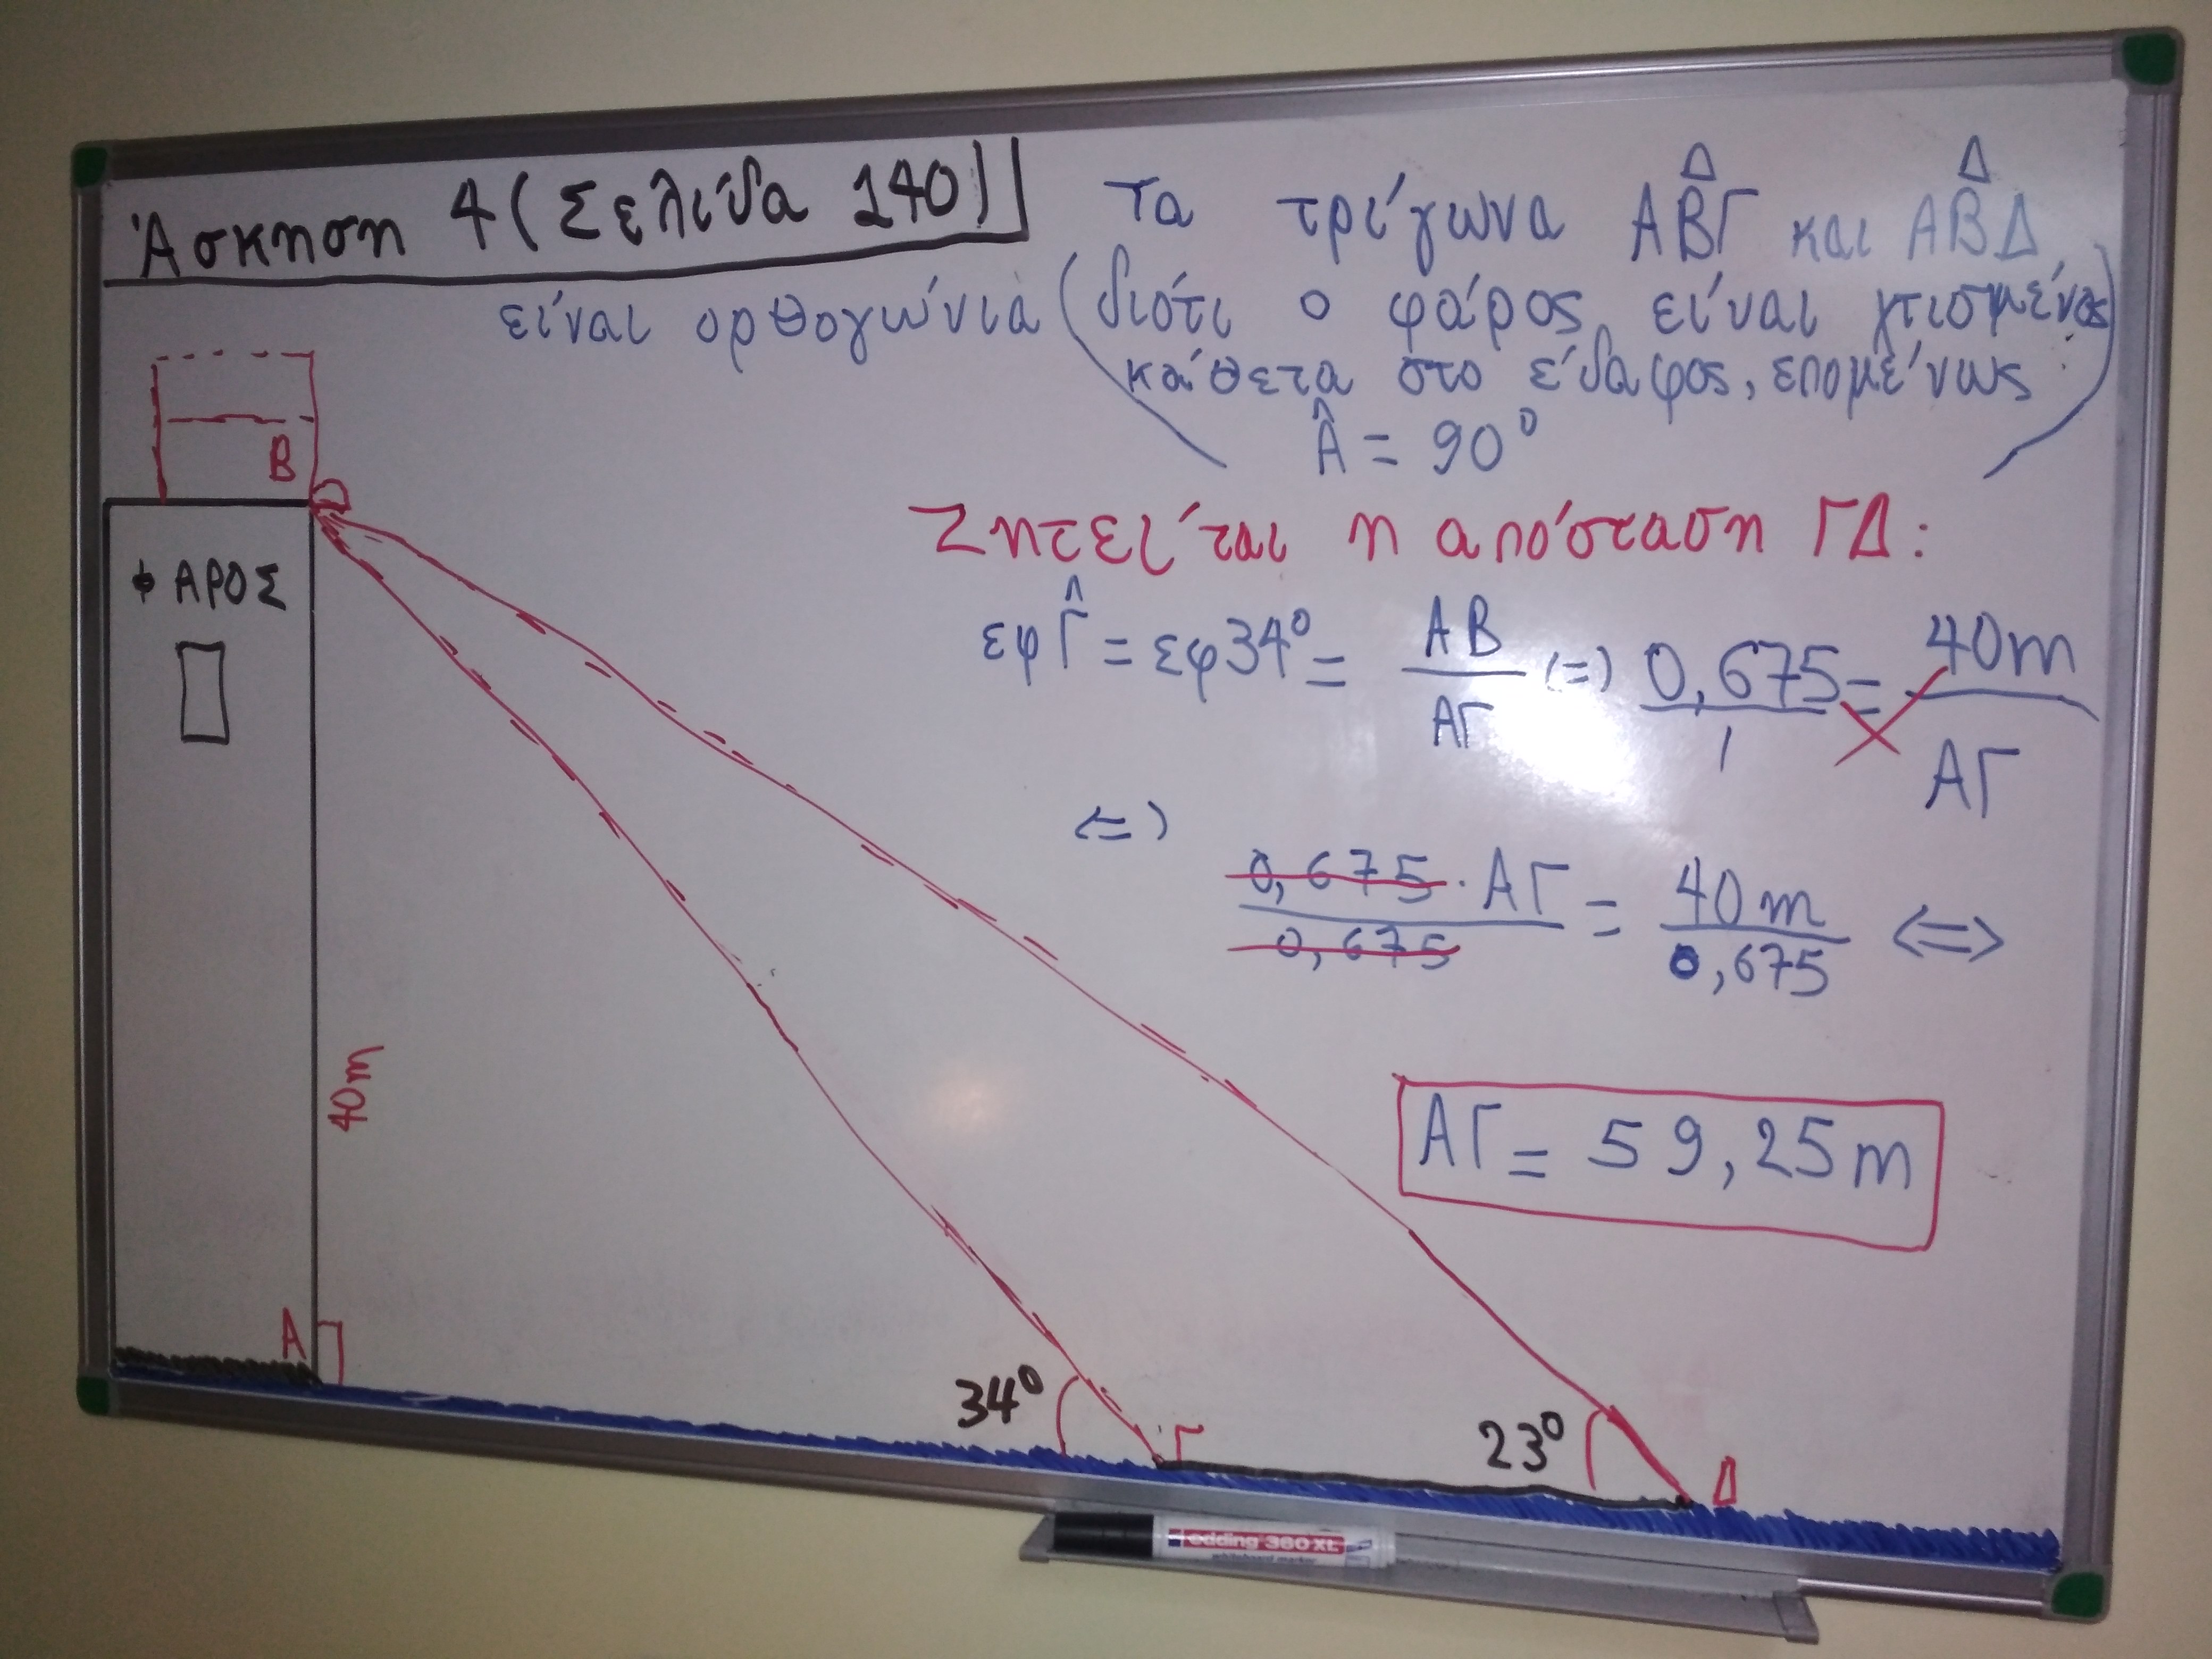 Άσκηση 4 (Σελίδα 140)
Τα τρίγωνα ΑΒ̂Γ και ΑΒ̂Δ
είναι ορθογώνια (διότι ο φάρος είναι χτισμένος
κάθετα στο έδαφος, επομένως:
Â = 90°)
Ζητείται η απόσταση ΓΔ:
εφΓ̂ = εφ34° = ΑΒ/ΑΓ (=) 0,675/1 = 40m/ΑΓ
<=>
0,675·ΑΓ/0,675 = 40m/0,675 <=>
ΑΓ = 59,25m
Β
ΦΑΡΟΣ
40m
Α
34°
Γ
23°
Δ
edding 360 XL
whiteboard marker